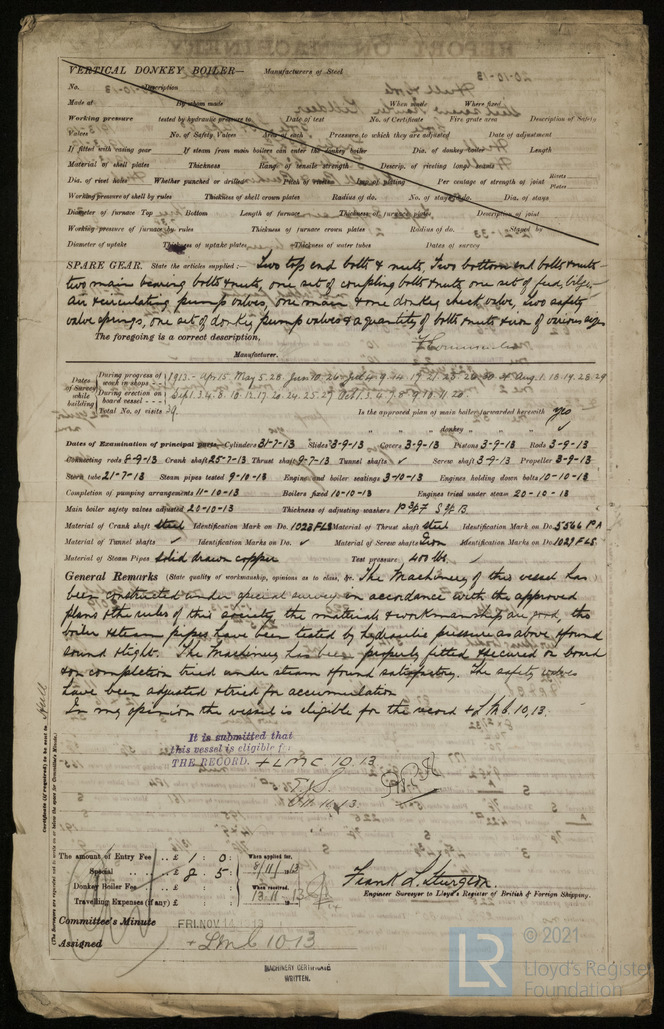 VERTICAL DONKEY BOILER— Manufacturers of Steel
No. Description
Made at By whom made When made Where fixed
Working pressure tested by hydraulic pressure to Date of test No. of Certificate Fire grate area Description of Safety
Valves No. of Safety Valves Area of each Pressure to which they are adjusted Date of adjustment
If fitted with easing gear If steam from main boilers can enter the donkey boiler Dia. of donkey boiler Length
Material of shell plates Thickness Range of tensile strength Descrip. of riveting long. seams
Dia. of rivet holes Whether punched or drilled Pitch of rivets Lap of plating Per centage of strength of joint Rivets Plates
Working pressure of shell by rules Thickness of shell crown plates Radius of do. No. of stays to do. Dia. of stays
Diameter of furnace Top Bottom Length of furnace Thickness of furnace plates Description of joint
Working pressure of furnace by rules Thickness of furnace crown plates Radius of do. Stayed by
Diameter of uptake Thickness of uptake plates Thickness of water tubes Dates of survey
SPARE GEAR. State the articles supplied:— Two top end bolts & nuts, Two bottom end bolts & nuts
two main bearing bolts & nuts, one set of coupling bolts & nuts, one set of feed, bilge,
air & circulating pump valves, one main & one donkey check valve, two safety
valve springs, one set of donkey pump valves & a quantity of bolts & nuts & iron of various sizes
The foregoing is a correct description,
Manufacturer.
Dates of Survey while building
During progress of work in shops - - 1913:- Apr 15. May 5. 28. Jun 10. 26. Jul 4. 9. 14. 17. 21. 25. 28. 30. 31. Aug. 1. 13. 19. 28. 29
During erection on board vessel - - - Sep 1. 3. 4. 8. 10. 12. 17. 20. 24. 25. 27. Oct 1. 3. 4. 7. 8. 9. 10. 11. 20
Total No. of visits 39. Is the approved plan of main boiler forwarded herewith yes
" " " donkey " " "
Dates of Examination of principal parts—Cylinders 31-7-13 Slides 3-9-13 Covers 3-9-13 Pistons 3-9-13 Rods 3-9-13
Connecting rods 8-9-13 Crank shaft 25-7-13 Thrust shaft 9-7-13 Tunnel shafts ✓ Screw shaft 3-9-13 Propeller 3-9-13
Stern tube 21-7-13 Steam pipes tested 9-10-13 Engine and boiler seatings 3-10-13 Engines holding down bolts 10-10-13
Completion of pumping arrangements 11-10-13 Boilers fixed 10-10-13 Engines tried under steam 20-10-13
Main boiler safety valves adjusted 20-10-13 Thickness of adjusting washers
Material of Crank shaft steel Identification Mark on Do. 1023 FLS Material of Thrust shaft steel Identification Mark on Do. 5566 PA
Material of Tunnel shafts ✓ Identification Marks on Do. ✓ Material of Screw shafts Iron Identification Marks on Do. 1029 FLS.
Material of Steam Pipes solid drawn copper Test pressure 400 lbs.
General Remarks (State quality of workmanship, opinions as to class, &c. The Machinery of this vessel has
been constructed under special survey in accordance with the approved
plans & the rules of this society, the materials & workmanship are good, the
boiler & steam pipes have been tested by hydraulic pressure as above & found
sound & tight. The Machinery has been properly fitted & secured on board
& on completion tried under steam & found satisfactory. The safety valves
have been adjusted & tried for accumulation
In my opinion the vessel is eligible for the record + L.M.C. 10,13.
It is submitted that
this vessel is eligible for
THE RECORD. + LMC 10.13
11.13
Certificate (if required) to be sent to Hull
(The Surveyors are requested not to write on or below the space for Committee's Minute.)
The amount of Entry Fee .. £ 1 : 0 : When applied for,
Special .. .. £ 8 . 5 : 8/11/1913
Donkey Boiler Fee .. .. £ : : When received,
Travelling Expenses (if any) £ : : 13.11.13
Frank L. Sturgeon.
Engineer Surveyor to Lloyd's Register of British & Foreign Shipping.
Committee's Minute FRI. NOV 14 1913
Assigned + LMC 10.13
MACHINERY CERTIFICATE
WRITTEN.
LR © 2021
Lloyd's Register
Foundation